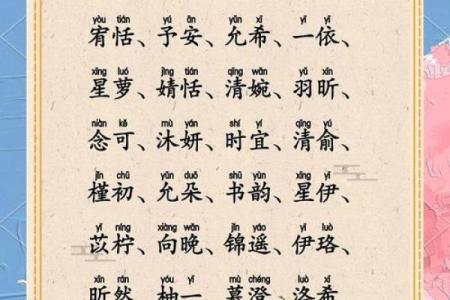 yòu tián yú ān yǔn xī yī yī
宥恬、予安、允希、一依、
xīng luó jìng tián qīng wǎn yǔ xīn
星萝、婧恬、清婉、羽昕、
niàn kě mù yán shí yí qīng yú
念可、沐妍、时宜、清俞、
jǐn chū yǔn duǒ shū yùn xīng yī
槿初、允朵、书韵、星伊、
yǐ níng xiàng wǎn jǐn yáo yī luò
苡柠、向晚、锦遥、伊珞、
xīn rán yóu yī mù chéng luò xī
昕然、柚一、慕澄、洛希、